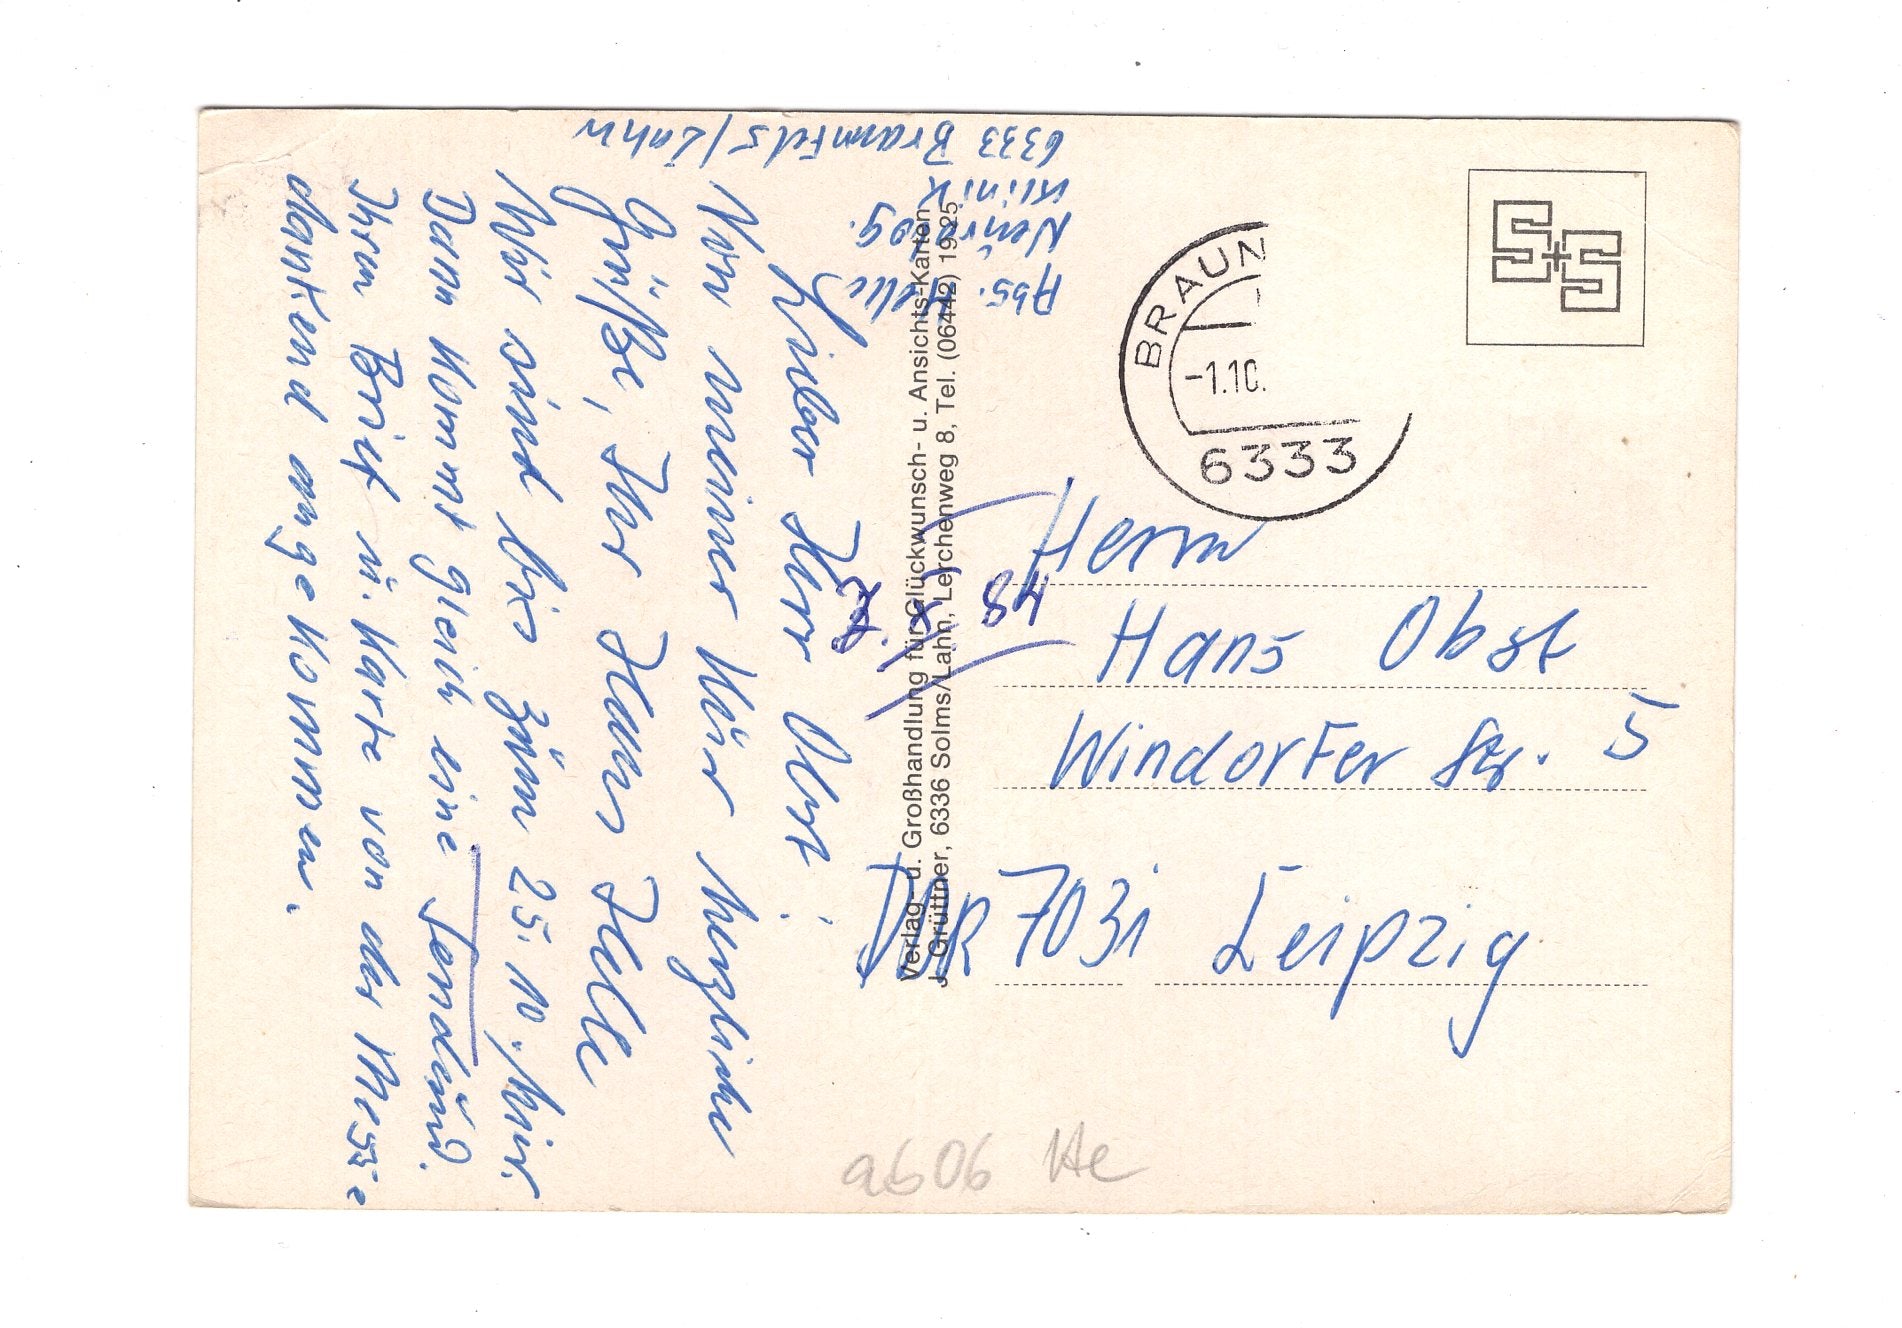 6333 Braunfels/Lahn
Klinik
Neurolog.
Abs. Helle
Lieber Herr Obst!
Von meiner Kür herzliche
Grüße, Ihr Hans Helle
Wir sind bis zum 25.10. hier.
Dann kommt gleich eine Sendung.
Ihren Brief u. Karte von der Messe
dankend angekommen.
Verlag- u. Großhandlung für Glückwunsch- u. Ansichts-Karten
J. Grüttner, 6336 Solms/Lahn, Lerchenweg 8, Tel. (06442) 1925
S+S
BRAUN
-1.10.
6333
48
Herrn
Hans Obst
Windorfer Str. 5
DDR 7031 Leipzig
a606 He